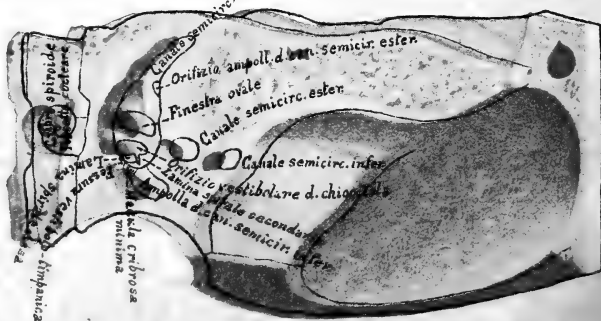 Canale semicirc.
Orifizio ampoll. d. can. semicir. ester.
Finestra ovale
Canale semicirc. ester.
Canale semicirc. infer.
Orifizio vestibolare d. chiocciola
Lamina spirale secondar.
Ampolla d. can. semicir. infer.
Macula cribrosa
minima
spiroide
Lamina
timpanica